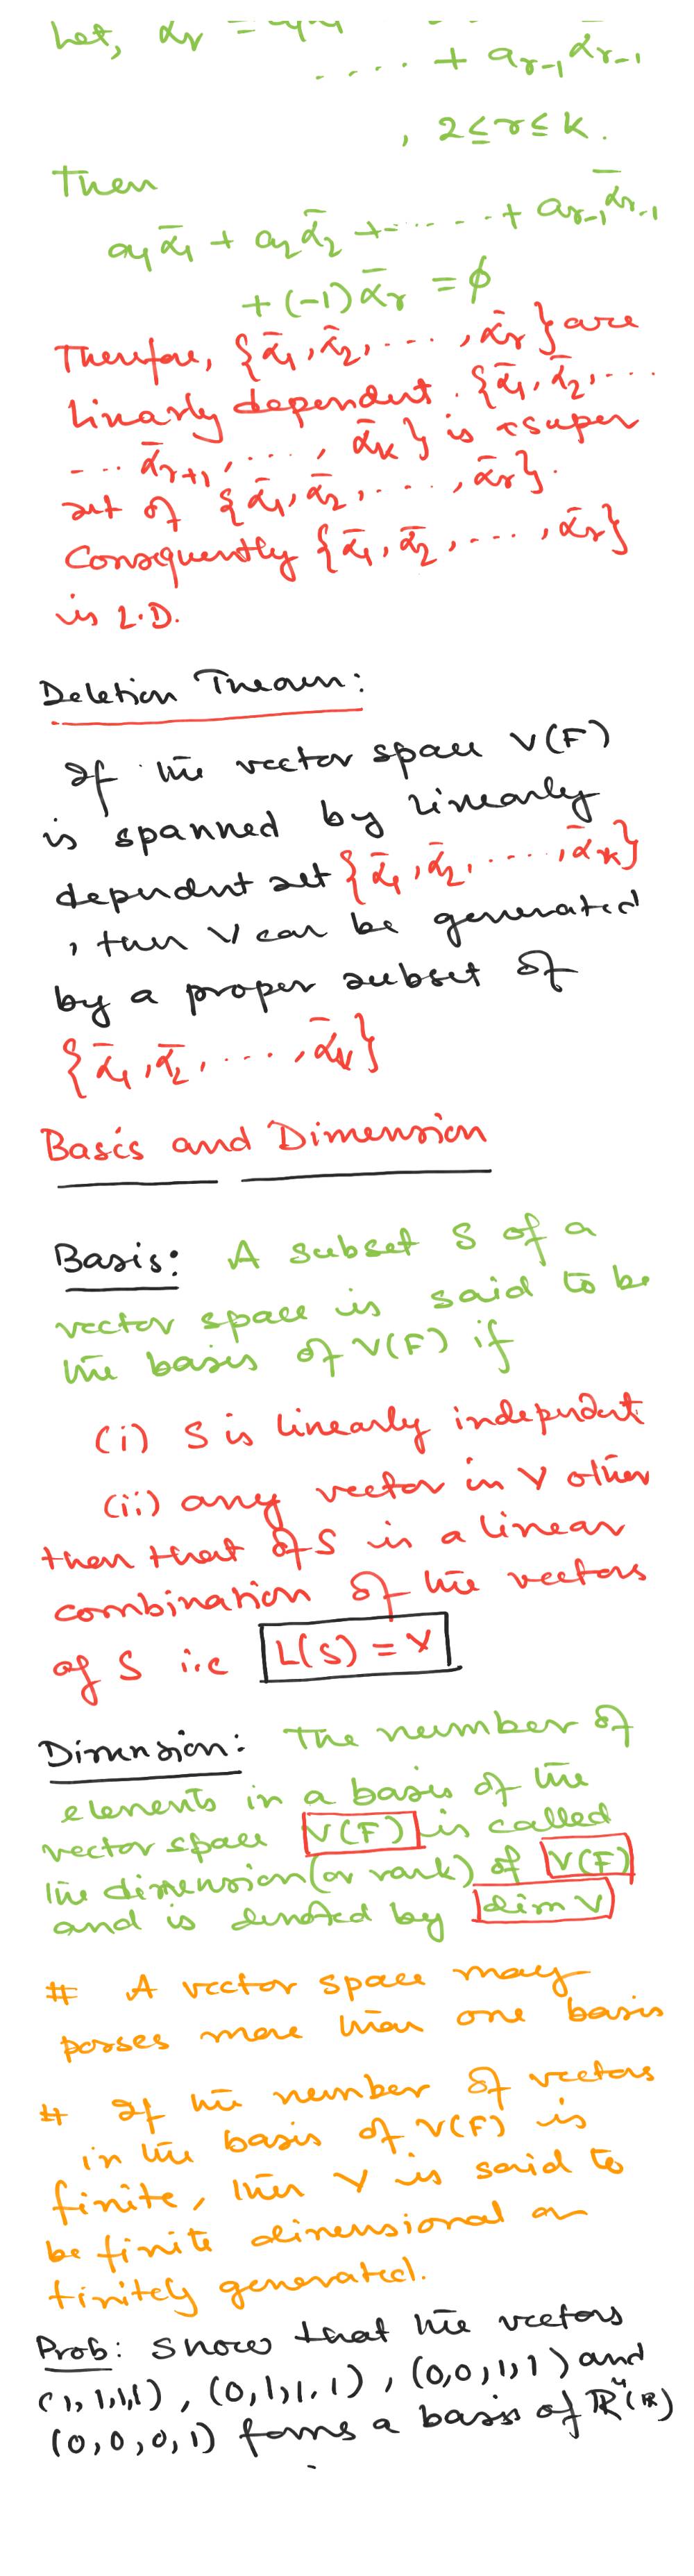 Let, αr =
.... + a_{r-1} ᾱ_{r-1}
, 2≤r≤k.
Then
a₁ᾱ₁ + a₂ᾱ₂ +...... + a_{r-1}ᾱ_{r-1}
+ (-1)ᾱr = ϕ
Therefore, {ᾱ₁, ᾱ₂, ..., ᾱr} are
linarly dependent. {ᾱ₁, ᾱ₂, ...
... ᾱ_{r+1}, ...., ᾱk} is super
set of {ᾱ₁, ᾱ₂, ...., ᾱr}.
Consequently {ᾱ₁, ᾱ₂, ...., ᾱr}
is L.D.
Deletion Theorem:
If the vector space V(F)
is spanned by linearly
dependent set {ᾱ₁, ᾱ₂, ...., ᾱk}
, then V can be generated
by a proper subset of
{ᾱ₁, ᾱ₂, ...., ᾱk}
Basis and Dimension
Basis: A subset S of a
vector space is said to be
the basis of V(F) if
(i) S is linearly independent
(ii) any vector in V other
then that of S is a linear
combination of the vectors
of S i.e L(S) = V
Dimension: The number of
elements in a basis of the
vector space V(F) is called
the dimension (or rank) of V(F)
and is denoted by dim V
# A vector space may
posses more than one basis
# If the number of vectors
in the basis of V(F) is
finite, then V is said to
be finite dimensional or
finitely generated.
Prob: Show that the vectors
(1,1,1,1), (0,1,1,1), (0,0,1,1) and
(0,0,0,1) forms a basis of ℝ⁴(ℝ)